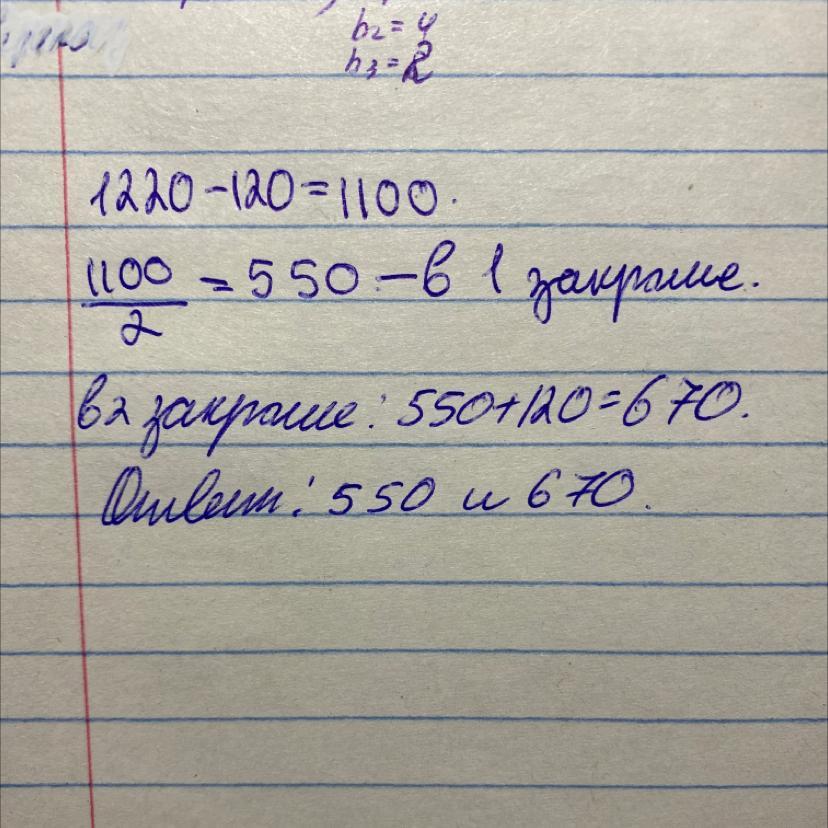 b₂ = 4
b₃ = 2
1220 - 120 = 1100.
1100/2 = 550 - в 1 закроме.
в 2 закроме: 550 + 120 = 670.
Ответ: 550 и 670.